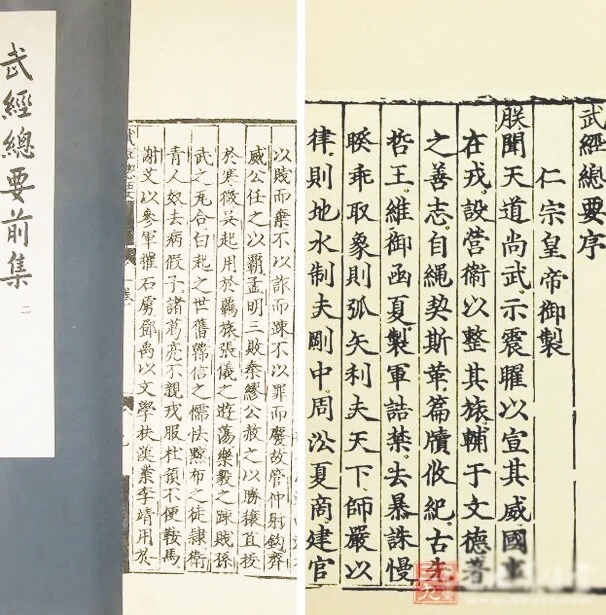 武經總要前集
二
以賤而棄不以詐而踈不以罪而廢故管仲射鉤齊
威公任之以霸孟明三敗秦繆公赦之以勝穰苴拔
於寒微吳起用於羈旅張儀之遊蕩樂毅之踈賤孫
武之瓦合白起之世舊韓信之懦怯黥布之徒隷衛
青人奴去病假子諸葛亮不親戎服杜預不便鞍馬
謝艾以參軍摧石虜鄧禹以文學扶漢業李靖用於
武經總要序
仁宗皇帝御製
朕聞天道尚武示震曜以宣其威國事
在戎設營衞以整其旅輔于文德著
之善志自繩契斯革篇牘攸紀古先
哲王維御函夏製軍詰禁去暴誅慢
睽乖取象則弧矢利夫天下師嚴以
律則地水制夫剛中周㳂夏商建官